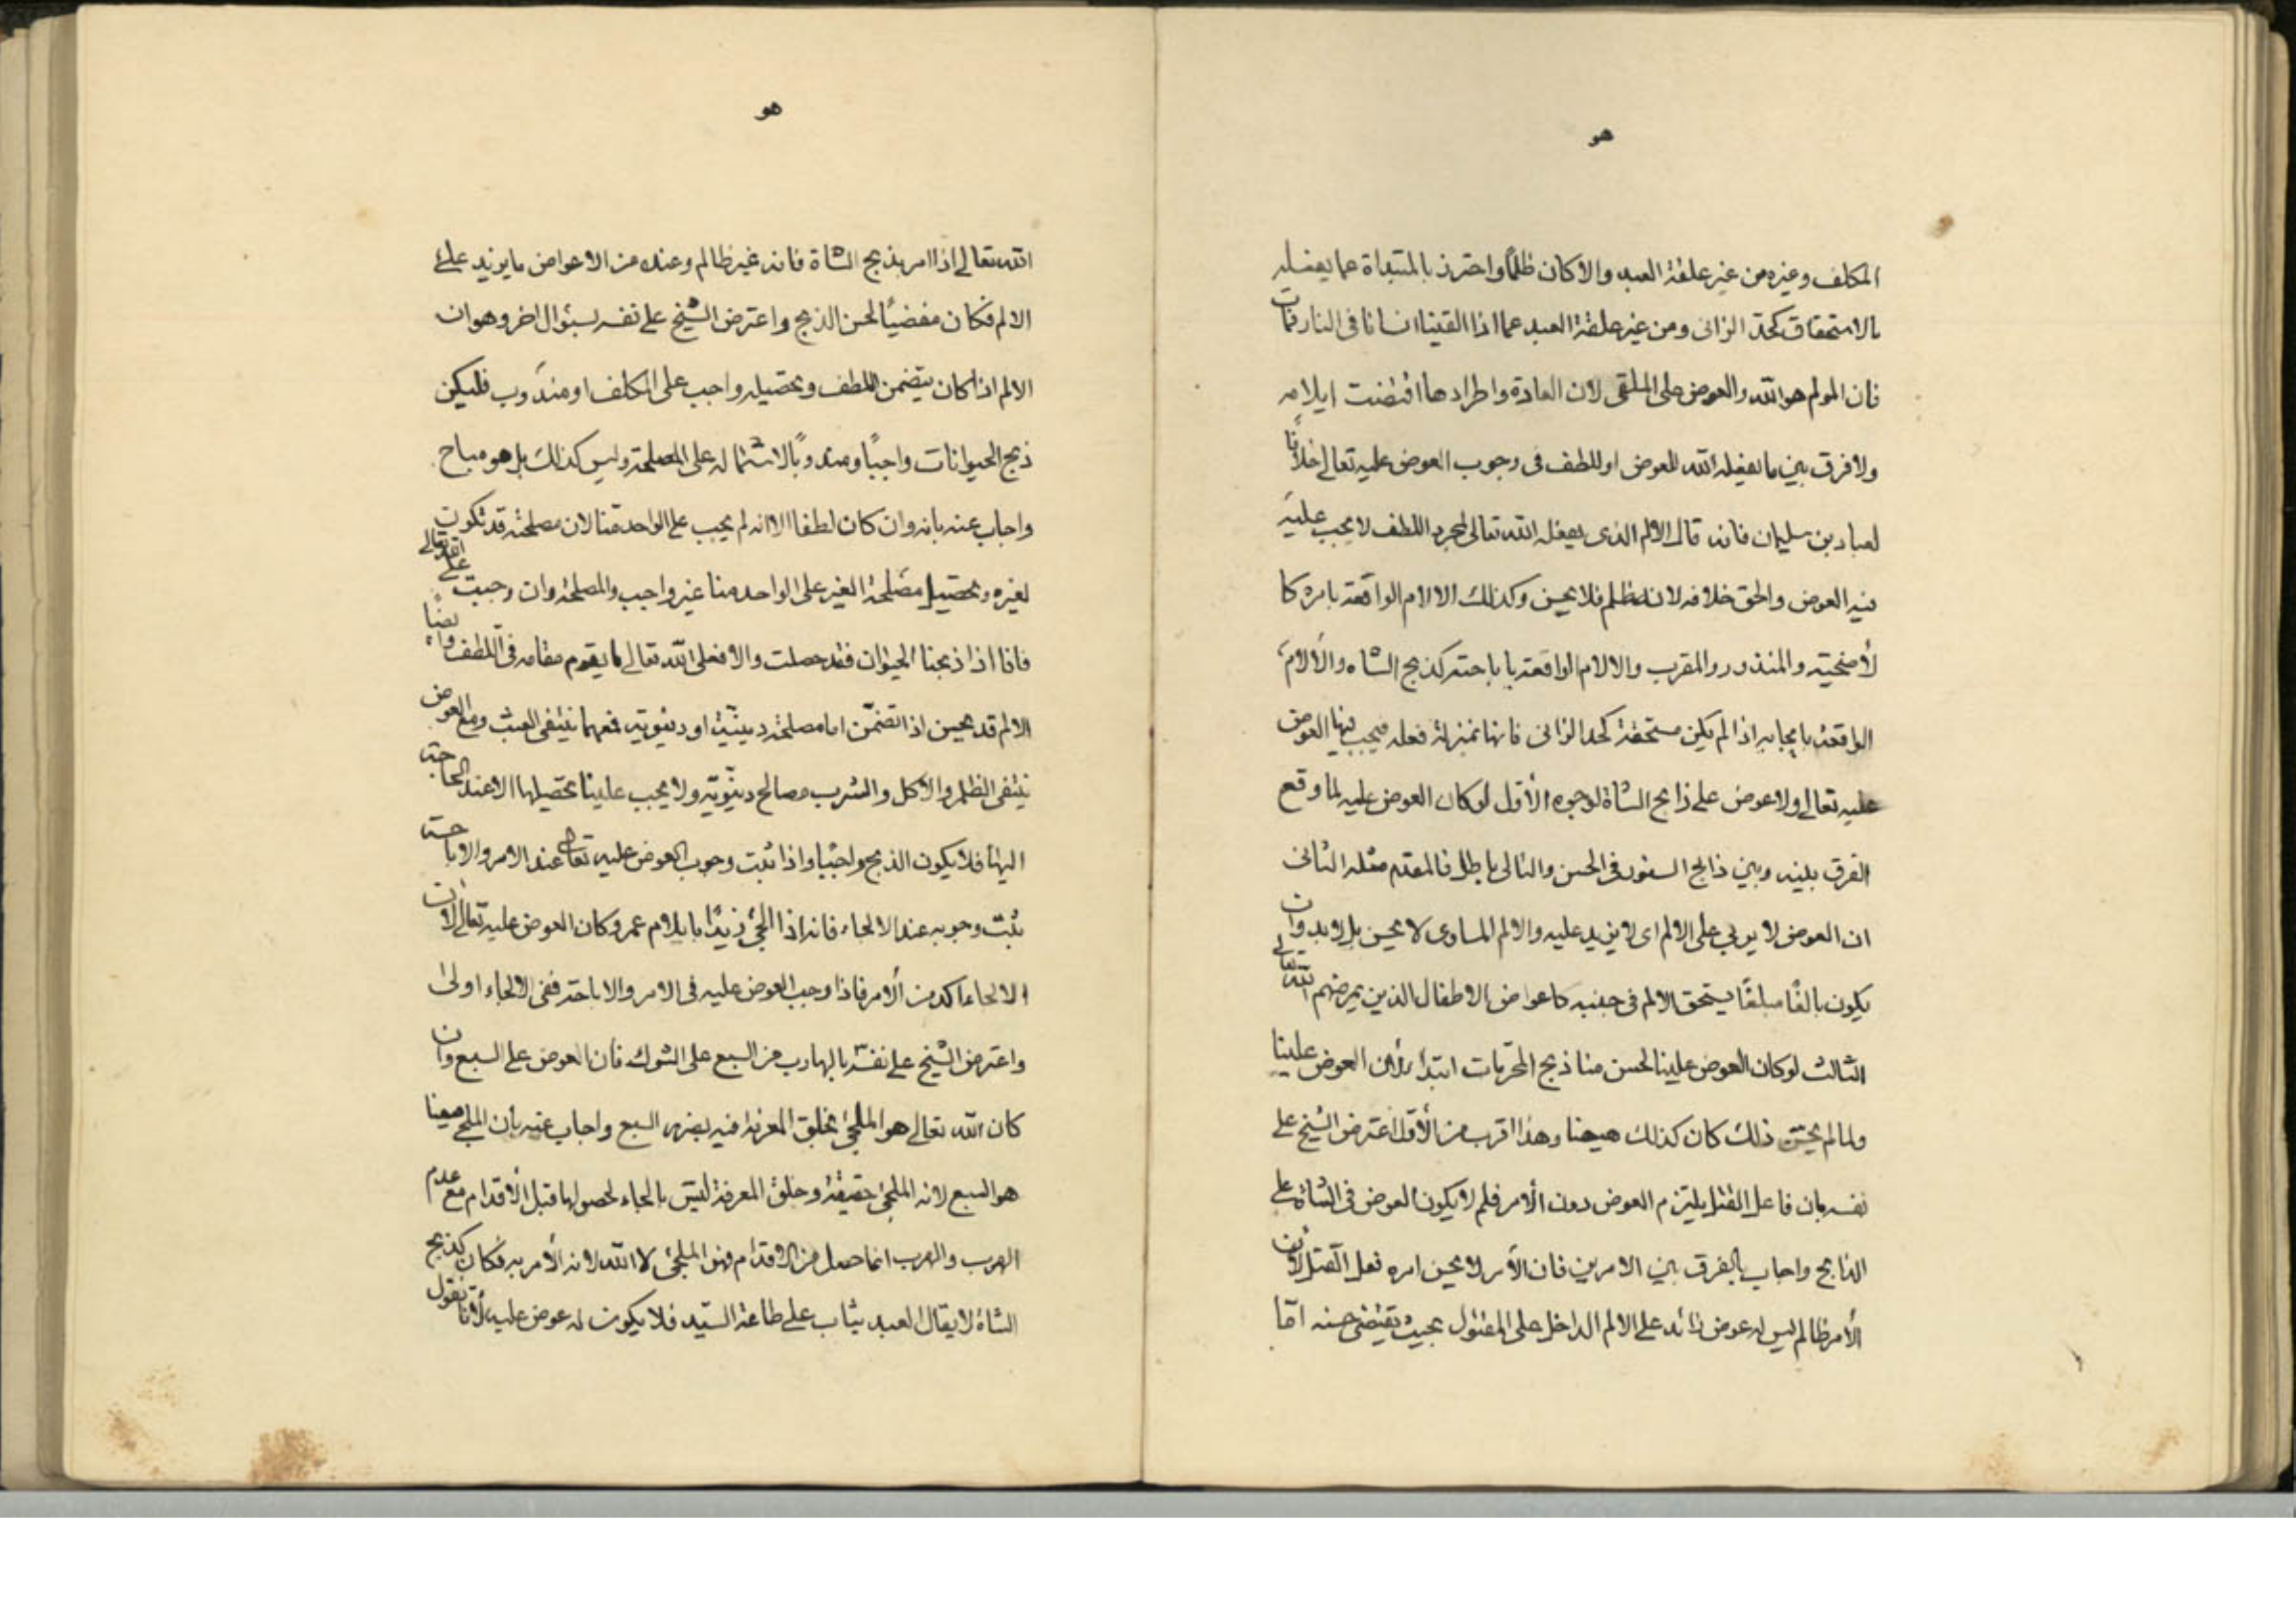 هو
المكلف وغيره من غير علقة العبد والا كان ظلما واحترز بالمبتداة عما يفعله
بالاستحقاق كحد الزانى ومن غير علقة العبد عما اذا القينا انسانا فى النار فمات
فان المولم هو الله والعوض على الملقى لان العادة واطرادها اقتضت ايلامه
ولا فرق بين ما يفعله الله للعوض او للطف فى وجوب العوض عليه تعالى خلافًا
لعباد بن سليمان فانه قال الالم الذى يفعله الله تعالى لمجرد اللطف لا يجب عليه
فيه العوض والحق خلافه لانه ظلم فلا يحسن وكذلك الالام الواقعة بامره كا
لأضحية والمنذور والمقرب والالام الواقعة باباحته كذبح الشاه والألام
الواقعة بايجابه اذا لم يكن مستحقة كحد الزانى فانها بمنزلة فعله فيجب فيها العوض
عليه تعالى ولا عوض على ذابح الشاة لوجوه الأول لو كان العوض عليه لما وقع
الفرق بينه وبين ذابح السنور فى الحسن والتالى باطل فالمقدم مثله الثانى
ان العوض لا يربى على الالم اى لا يزيد عليه والالم المساوى لا يحسن بل لابد وان
يكون بالغًا مبلغًا يستحق الالم فى جنبه كاعواض الاطفال الذين يمرضهم الله تعالى
الثالث لو كان العوض علينا لحسن منا ذبح المحرمات ابتداء لأن العوض علينا
ولما لم يحسن ذلك كان كذلك هيهنا وهذا اقرب من الأول اعترض الشيخ على
نفسه بان فاعل القتل يلتزم العوض دون الأمر فلم لا يكون العوض فى الشاة على
الذابح واجاب بالفرق بين الامرين فان الأمر لا يحسن امره فعل القتل لأن
الأمر ظالم ليس له عوض زائد على الالم الداخل على المقتول بحيث يقتضى حسنه اما
هو
الله تعالى اذا امر بذبح الشاة فانه غير ظالم وعنده من الاعواض ما يزيد على
الالم فكان مفضيًا لحسن الذبح واعترض الشيخ على نفسه بسئوال اخر وهو ان
الالم اذا كان يتضمن اللطف وتحصيله واجب على المكلف او مندوب فليكن
ذبح الحيوانات واجبًا ومندوبًا لاشتماله على المصلحة وليس كذلك بل هو مباح
واجاب عنه بانه وان كان لطفا الا انه لم يجب على الواحد منا لان مصلحته قد تكون
لغيره وتحصيل مصلحة الغير على الواحد منا غير واجب والمصلحة وان وجبت على الله تعالى
فانا اذا ذبحنا الحيوان فقد حصلت والا فعلى الله تعالى ما يقوم مقامه فى اللطف وايضا
الالم قد يحسن اذا تضمن اما مصلحة دينية او دنيوية فمعهما ينتفى العبث ومع العوض
ينتفى الظلم والاكل والشرب مصالح دنيوية ولا يجب علينا تحصيلها الا عند الحاجة
اليها فلا يكون الذبح واجبًا واذا ثبت وجوب العوض عليه تعالى عند الامر والاباحة
ثبت وجوبه عند الالجاء فانه اذا الجئ زيدًا بايلام عمرو كان العوض عليه تعالى لان
الالجاء اكد من الأمر فاذا وجب العوض عليه فى الامر والاباحة ففى الالجاء اولى
واعترض الشيخ على نفسه بالهارب من السبع على الشوك فان العوض على السبع وان
كان الله تعالى هو الملجئ بخلق المعرفة فيه بضرر السبع واجاب عنه بان الملجئ هيهنا
هو السبع لانه الملجئ حقيقة وخلق المعرفة ليس بالجاء لحصولها قبل الأقدام مع عدم
الهرب والهرب انما حصل من الاقدام فهو الملجئ لا الله لانه الأمر به فكان كذبح
الشاة لا يقال العبد يثاب على طاعة السيد فلا يكون له عوض عليه لأنا نقول